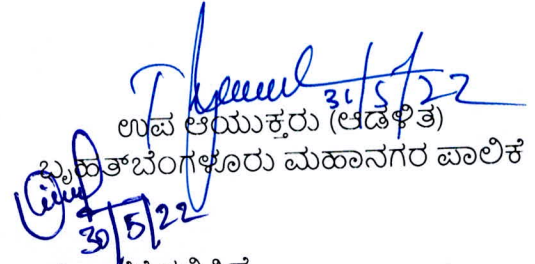 31/5/22
ಉಪ ಆಯುಕ್ತರು (ಆಡಳಿತ)
ಬೃಹತ್ ಬೆಂಗಳೂರು ಮಹಾನಗರ ಪಾಲಿಕೆ
30/5/22